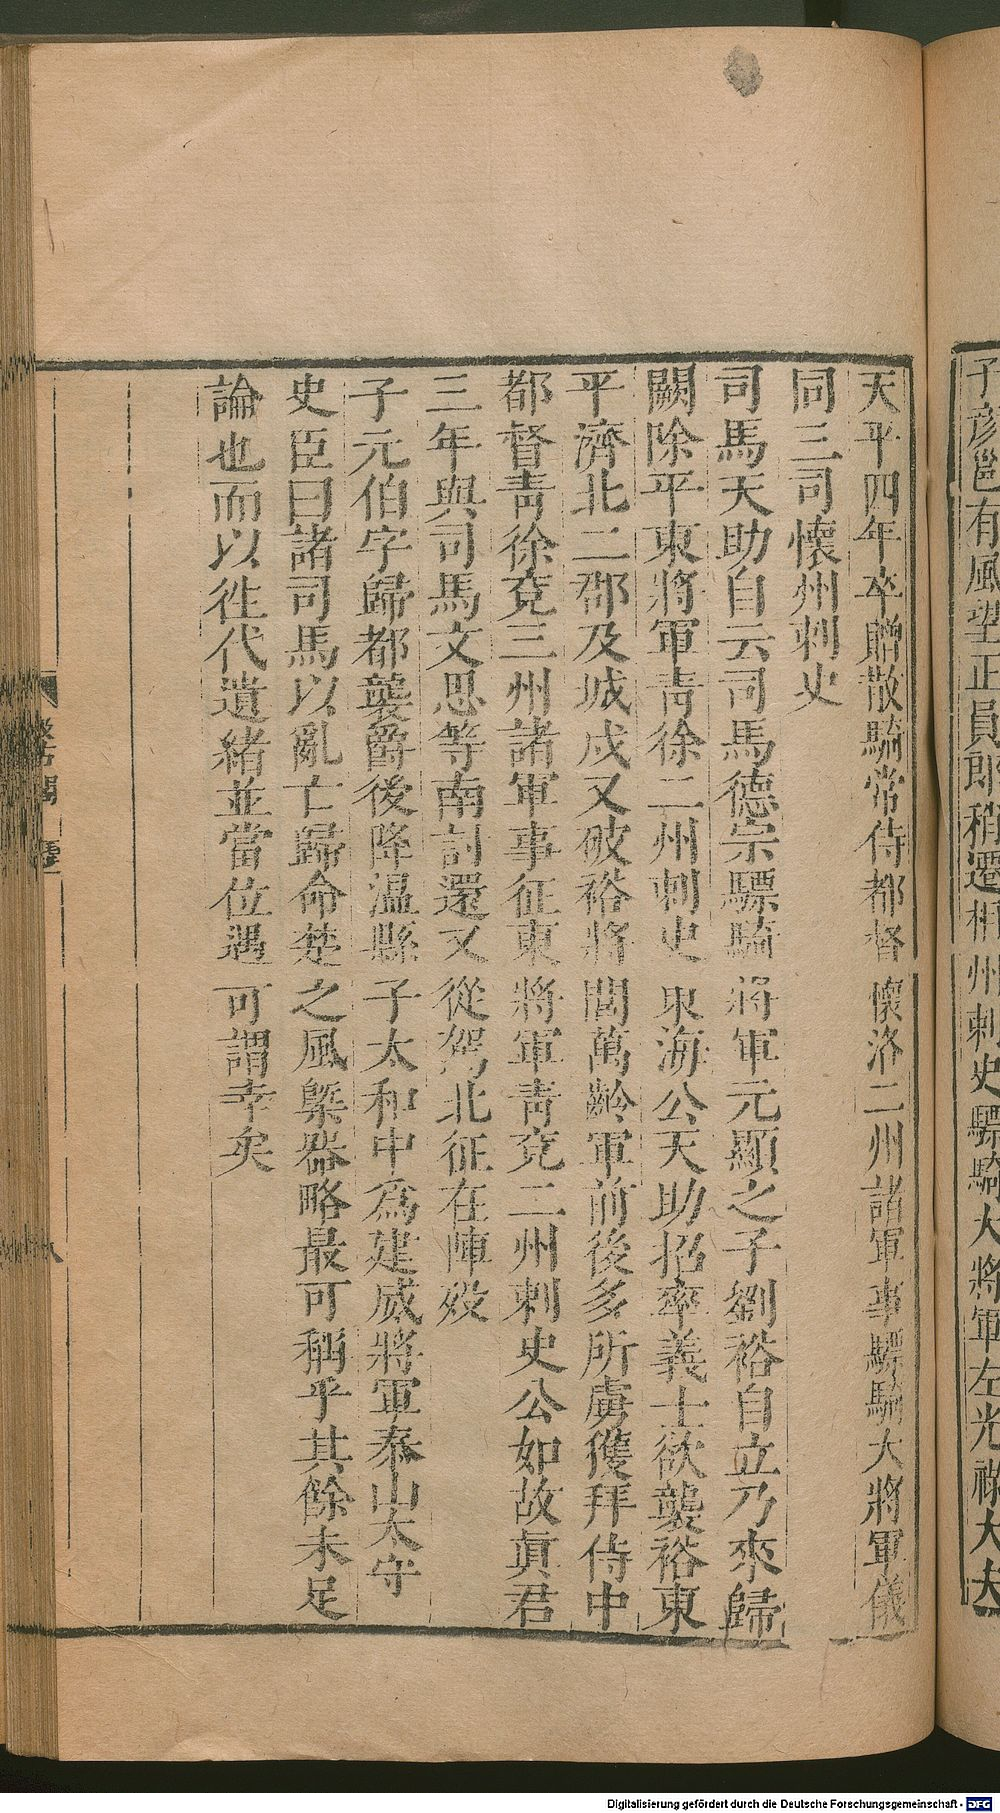 子彦邕有風望正員郎稍遷相州刺史驃騎大將軍左光祿大夫
天平四年卒贈散騎常侍都督懷洛二州諸軍事驃騎大將軍儀
同三司懷州刺史
司馬天助自云司馬德宗驃騎將軍元顯之子劉裕自立乃來歸
闕除平東將軍青徐二州刺史東海公天助招率義士欲襲裕東
平濟北二郡及城戍又破裕將閭萬齡軍前後多所虜獲拜侍中
都督靑徐兗三州諸軍事征東將軍靑兗二州刺史公如故眞君
三年與司馬文思等南討還又從駕北征在陣歿
子元伯字歸都襲爵後降温縣子太和中爲建威將軍泰山太守
史臣曰諸司馬以亂亡歸命楚之風槩器略最可稱乎其餘未足
論也而以往代遺緒並當位遇可謂幸矣
八
Digitalisierung gefördert durch die Deutsche Forschungsgemeinschaft - DFG